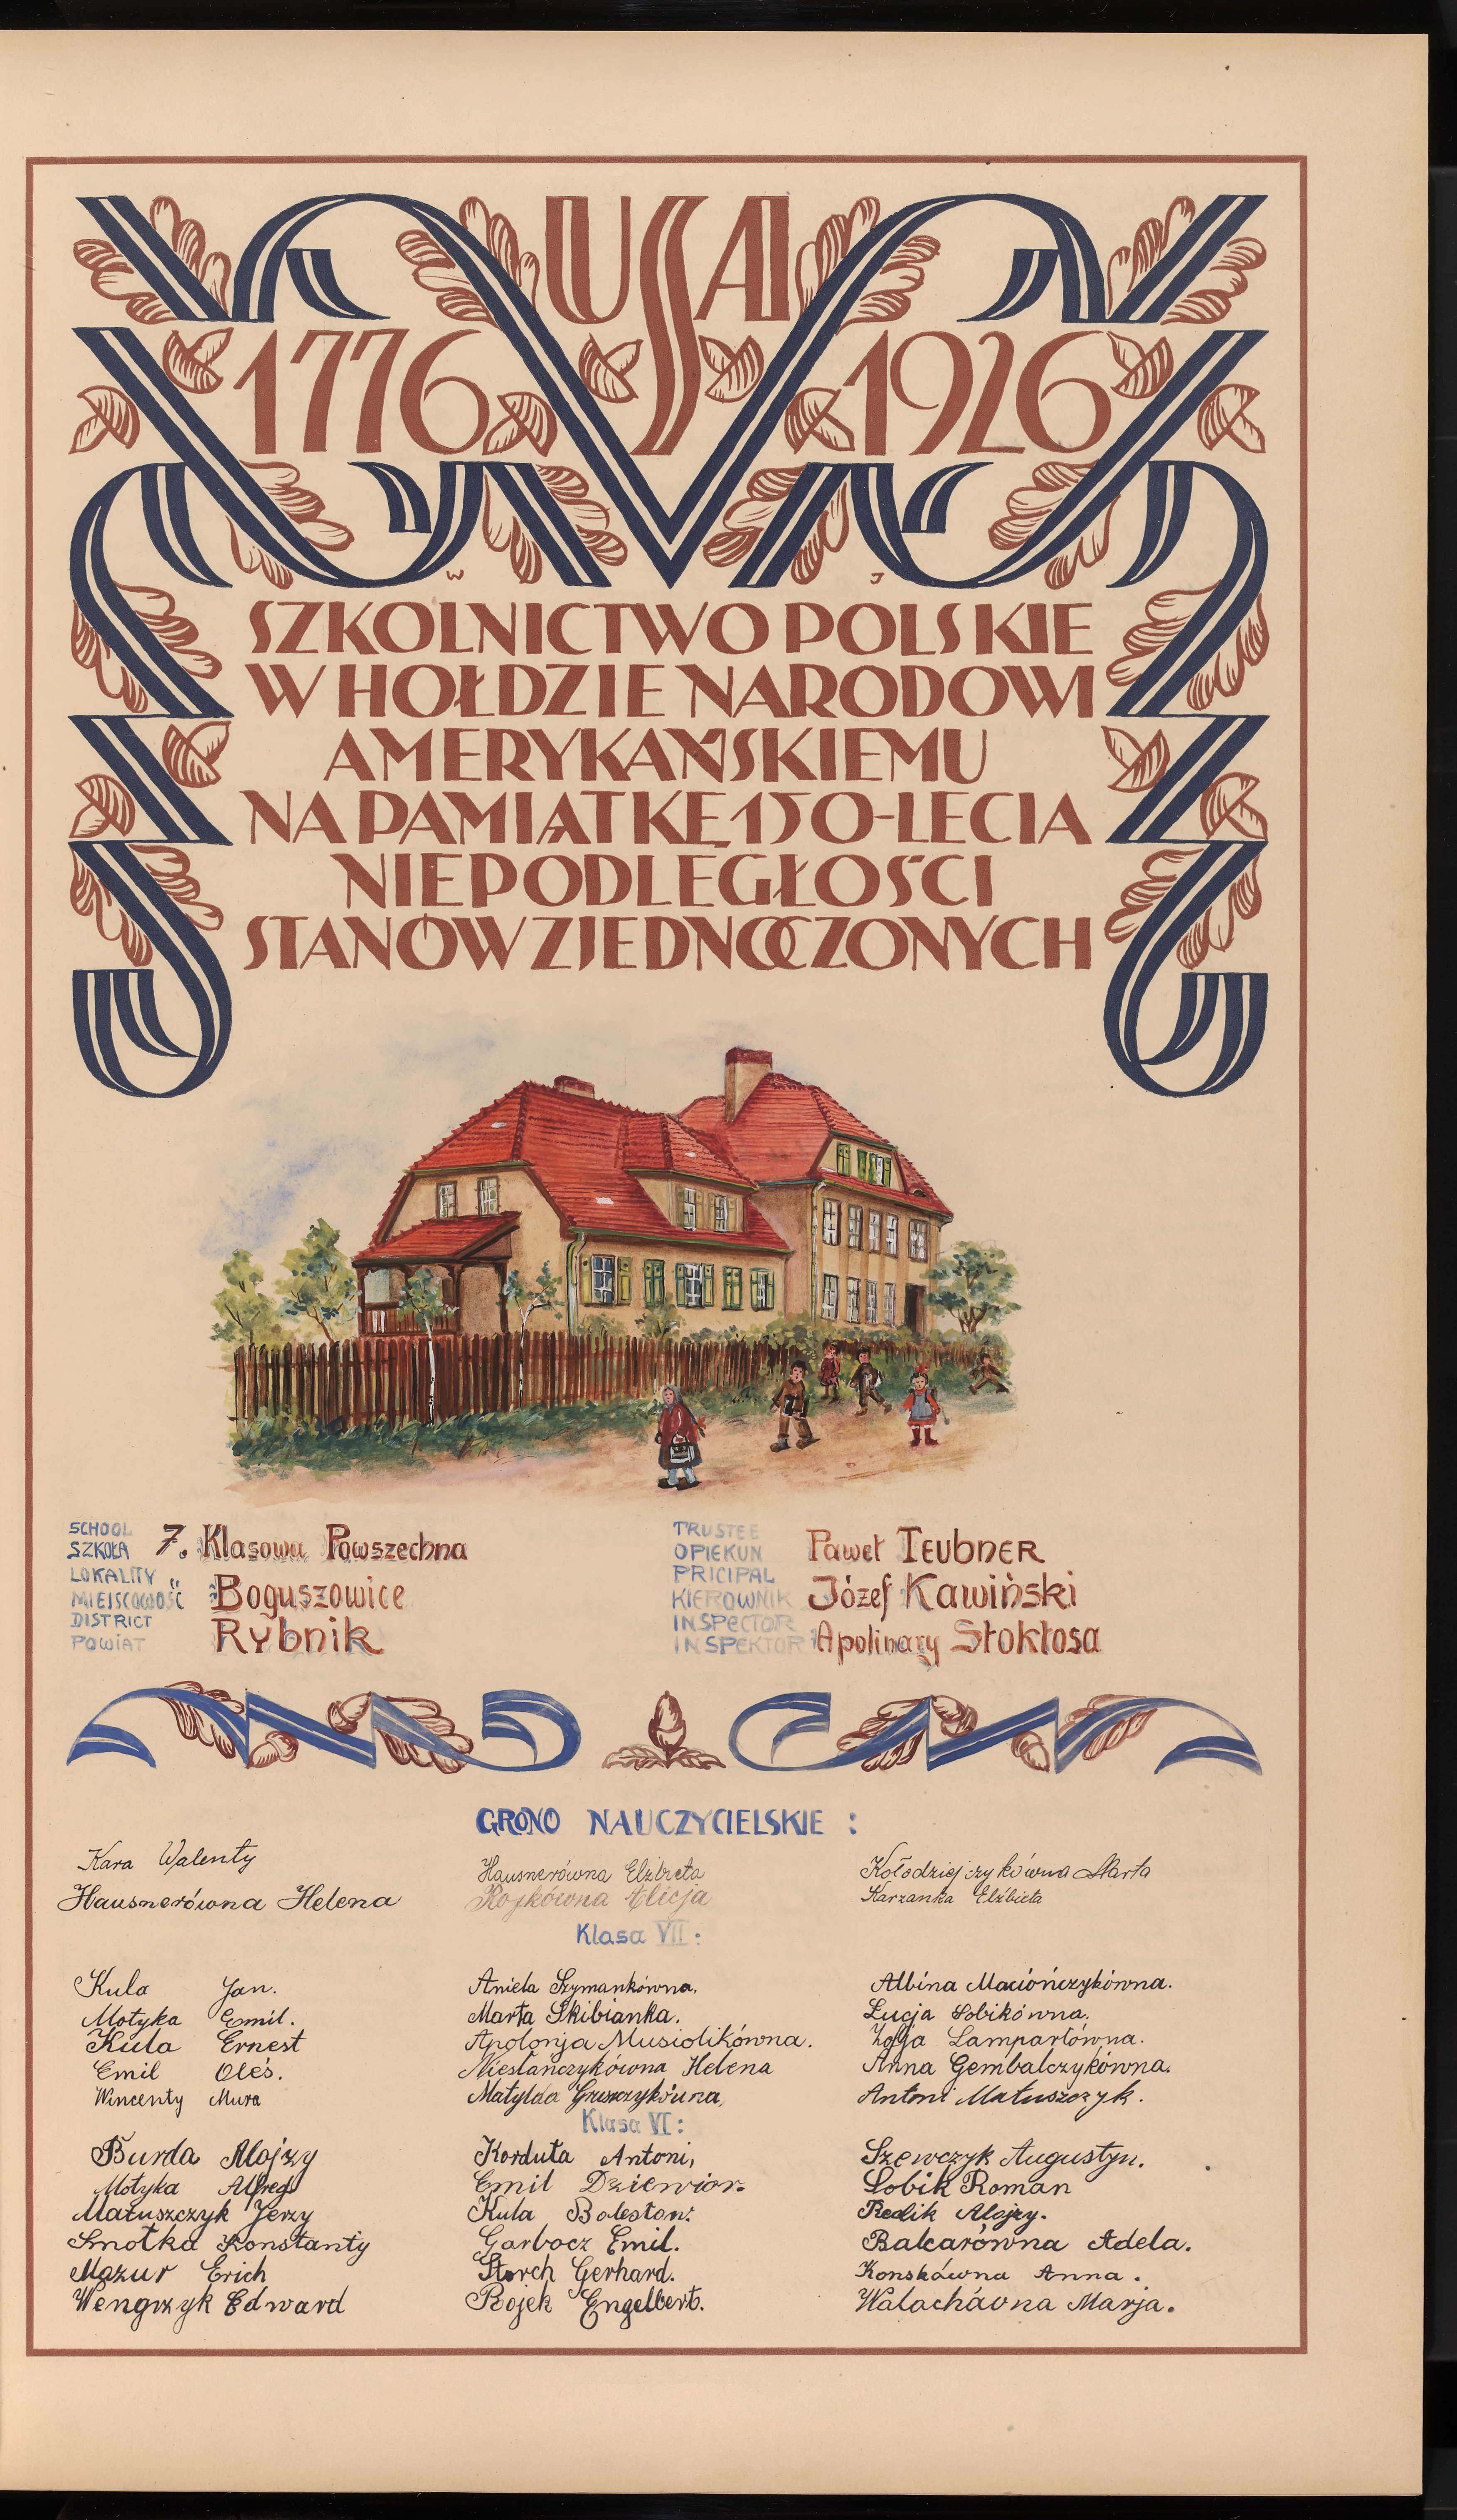 USA
1776 1926
W J
SZKOLNICTWO POLSKIE
W HOŁDZIE NARODOWI
AMERYKAŃSKIEMU
NA PAMIĄTKĘ 150-LECIA
NIEPODLEGŁOŚCI
STANÓW ZJEDNOCZONYCH
SCHOOL
SZKOŁA 7. Klasowa Powszechna
LOKALITY
MIEJSCOWOŚĆ Boguszowice
DISTRICT
POWIAT Rybnik
TRUSTEE
OPIEKUN Paweł TEUBNER
PRICIPAL
KIEROWNIK Józef Kawiński
INSPECTOR
INSPEKTOR Apolinary Stokłosa
GRONO NAUCZYCIELSKIE :
Kara Walenty
Hausnerówna Helena
Hausnerówna Elżbieta
Rojkówna Alicja
Kołodziejczykówna Marta
Karzanka Elżbieta
Klasa VII :
Kula Jan.
Motyka Emil.
Kula Ernest
Emil Oleś.
Wincenty Mura
Aniela Szymankówna.
Marta Skibianka.
Apolonja Musiolikówna.
Niestańczykówna Helena
Matylda Gruszczykówna,
Albina Maciończykówna.
Łucja Sobikówna.
Zofja Lampartówna.
Anna Gembalczykówna.
Antoni Matuszczyk.
Klasa VI :
Burda Alojzy
Motyka Alfred
Matuszczyk Jerzy
Smołka Konstanty
Mazur Erich
Wengrzyk Edward
Korduła Antoni,
Emil Dziewior.
Kula Bolesław.
Garbocz Emil.
Storch Gerhard.
Rojek Engelbert.
Szewczyk Augustyn.
Sobik Roman
Redlik Alojzy.
Balcarówna Adela.
Konskówna Anna.
Walachówna Marja.